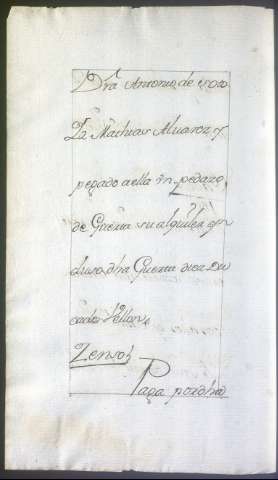 Dra Antonio de
La Mathias Aluarez y
pegado a ella vn pedazo
de Guerta su alquiler yn
cluso dha Guerta diez Du
cados Vellon
Zensos
Paga por dha